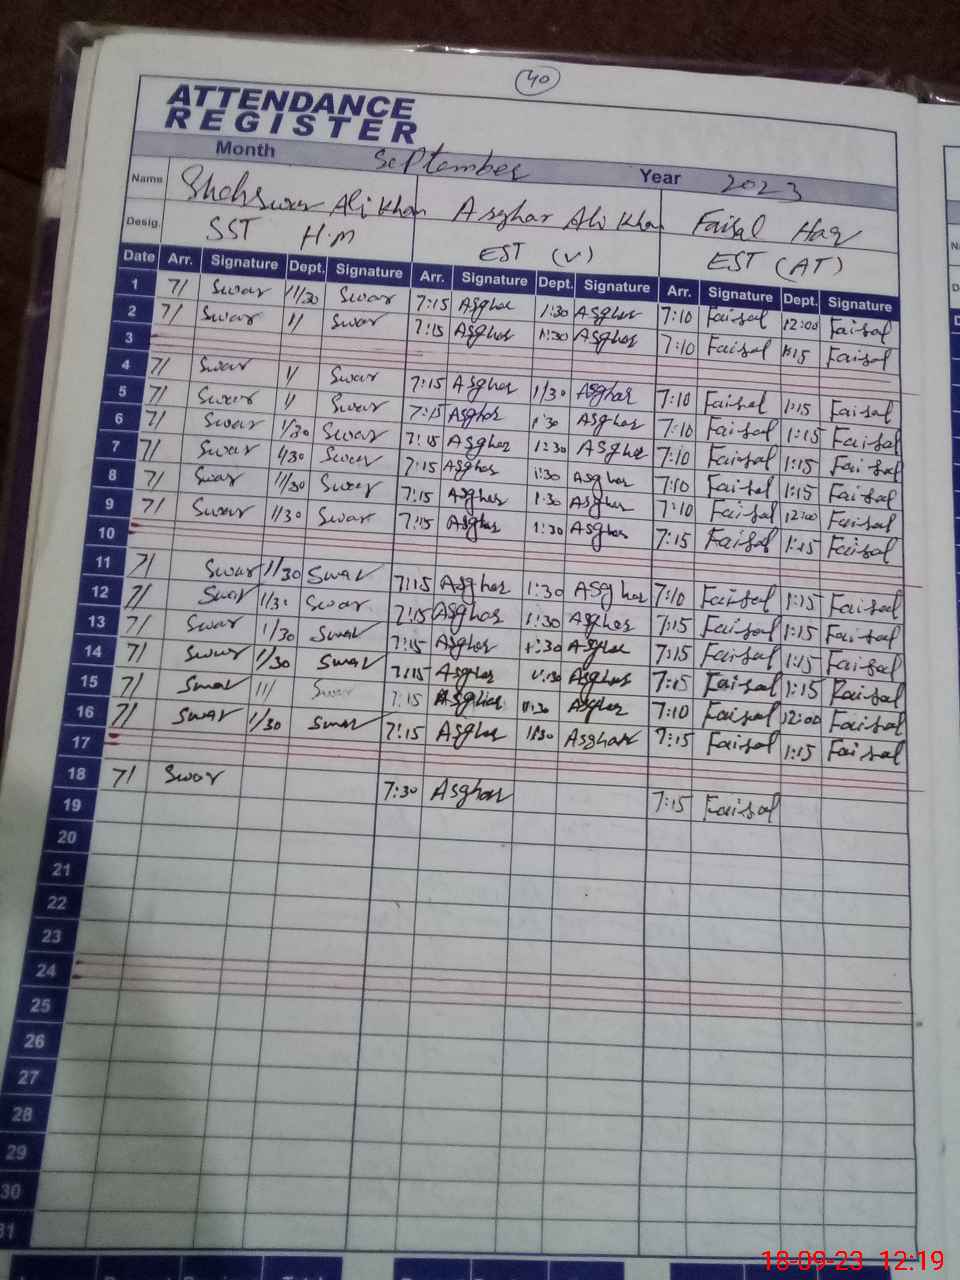 40
ATTENDANCE
REGISTER
Month September Year 2023
Name Shehswar Ali Khan Asghar Ali Khan Faisal Haq
Desig. SST H.M EST (V) EST (AT)
Date Arr. Signature Dept. Signature Arr. Signature Dept. Signature Arr. Signature Dept. Signature
1 7/ Swar 1/30 Swar 7:15 Asghar 1:30 Asghar 7:10 Faisal 12:00 Faisal
2 7/ Swar 1/ Swar 7:15 Asghar 1:30 Asghar 7:10 Faisal 1:15 Faisal
3
4 7/ Swar 1/ Swar 7:15 Asghar 1/30 Asghar 7:10 Faisal 1:15 Faisal
5 7/ Swar 1/ Swar 7:15 Asghar 1:30 Asghar 7:10 Faisal 1:15 Faisal
6 7/ Swar 1/30 Swar 7:15 Asghar 1:30 Asghar 7:10 Faisal 1:15 Faisal
7 7/ Swar 1/30 Swar 7:15 Asghar 1:30 Asghar 7:10 Faisal 1:15 Faisal
8 7/ Swar 1/30 Swar 7:15 Asghar 1:30 Asghar 7:10 Faisal 12:00 Faisal
9 7/ Swar 1/30 Swar 7:15 Asghar 1:30 Asghar 7:15 Faisal 1:15 Faisal
10
11 7/ Swar 1/30 Swar 7:15 Asghar 1:30 Asghar 7:10 Faisal 1:15 Faisal
12 7/ Swar 1/30 Swar 7:15 Asghar 1:30 Asghar 7:15 Faisal 1:15 Faisal
13 7/ Swar 1/30 Swar 7:15 Asghar 1:30 Asghar 7:15 Faisal 1:15 Faisal
14 7/ Swar 1/30 Swar 7:15 Asghar 1:30 Asghar 7:15 Faisal 1:15 Faisal
15 7/ Swar 11/ Swar 7:15 Asghar 11:30 Asghar 7:10 Faisal 12:00 Faisal
16 7/ Swar 1/30 Swar 7:15 Asghar 1:30 Asghar 7:15 Faisal 1:15 Faisal
17
18 7/ Swar 7:30 Asghar 7:15 Faisal
19
20
21
22
23
24
25
26
27
28
29
30
31
18-09-23 12:19